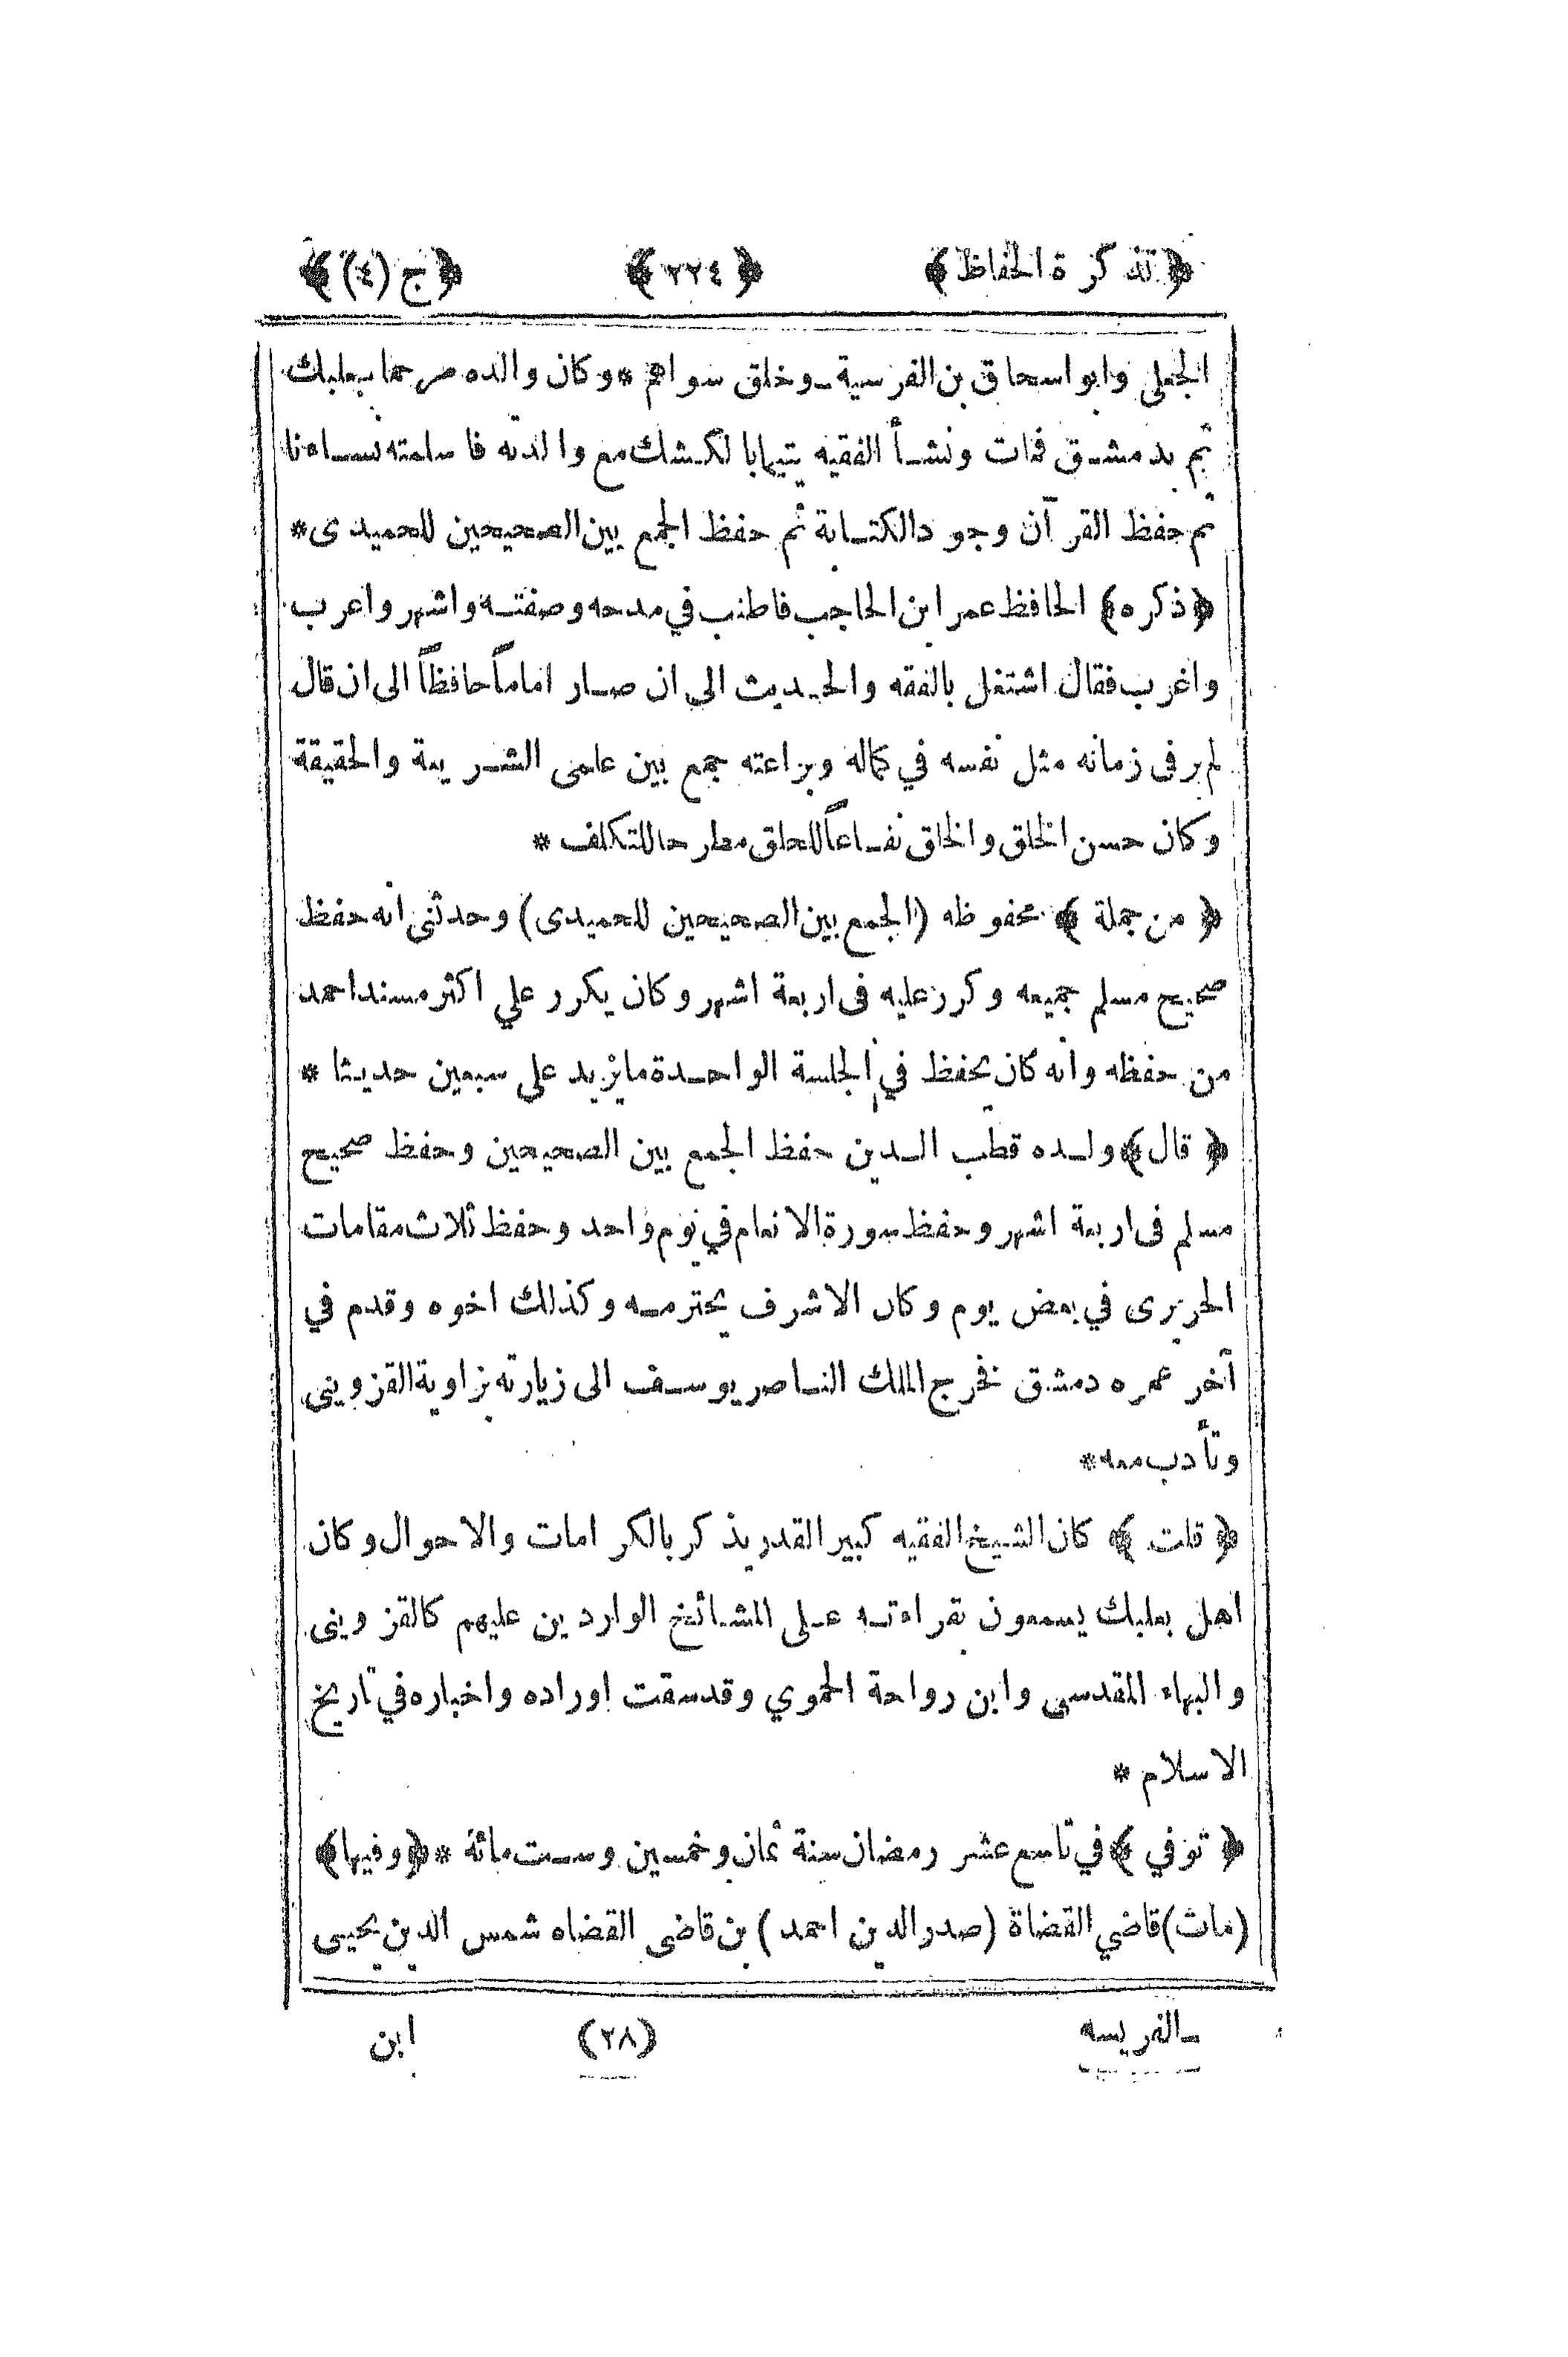 ﴿تذكرة الحفاظ﴾ ﴿٢٢٤﴾ ﴿ج (٤)﴾
الجعلى وابو اسحاق بن القرسية ـ وخلق سواهم * وكان والده مرحما ببعلبك
ثم بدمشق فمات ونشأ الفقيه يتيما بالكشك مع والدته فاسلمته نساءنا
ثم حفظ القرآن وجود الكتابة ثم حفظ الجمع بين الصحيحين للحميدى *
﴿ذكره﴾ الحافظ عمر ابن الحاجب فاطنب في مدحه وصفته واشهر واعرب
واغرب فقال اشتغل بالفقه والحديث الى ان صار اماماً حافظاً الى ان قال
لم ير فى زمانه مثل نفسه في كماله وبراعته جمع بين علمى الشريعة والحقيقة
وكان حسن الخلق والخلق نفاعاً للخلق مطرحا للتكلف *
﴿من جملة﴾ محفوظه (الجمع بين الصحيحين للحميدى) وحدثنى انه حفظ
صحيح مسلم جميعه وكرر عليه فى اربعة اشهر وكان يكرر علي اكثر مسند احمد
من حفظه وانه كان يحفظ في الجلسة الواحدة ما يزيد على سبعين حديثا *
﴿قال﴾ ولده قطب الدين حفظ الجمع بين الصحيحين وحفظ صحيح
مسلم فى اربعة اشهر وحفظ سورة الانعام في يوم واحد وحفظ ثلاث مقامات
الحريرى في بعض يوم وكان الاشرف يحترمه وكذلك اخوه وقدم في
آخر عمره دمشق فخرج الملك الناصر يوسف الى زيارته بزاوية القزوينى
وتأدب معه *
﴿قلت﴾ كان الشيخ الفقيه كبير القدر يذكر بالكرامات والاحوال وكان
اهل بعلبك يسمعون بقراءته على المشائخ الواردين عليهم كالقزوينى
والبهاء المقدسى وابن رواحة الحموي وقد سقت اوراده واخباره في تاريخ
الاسلام *
﴿توفي﴾ في تاسع عشر رمضان سنة ثمان وخمسين وست مائة * ﴿وفيها﴾
(مات) قاضي القضاة (صدر الدين احمد) بن قاضى القضاه شمس الدين يحيى
ـ الفريسه (٢٨) ابن